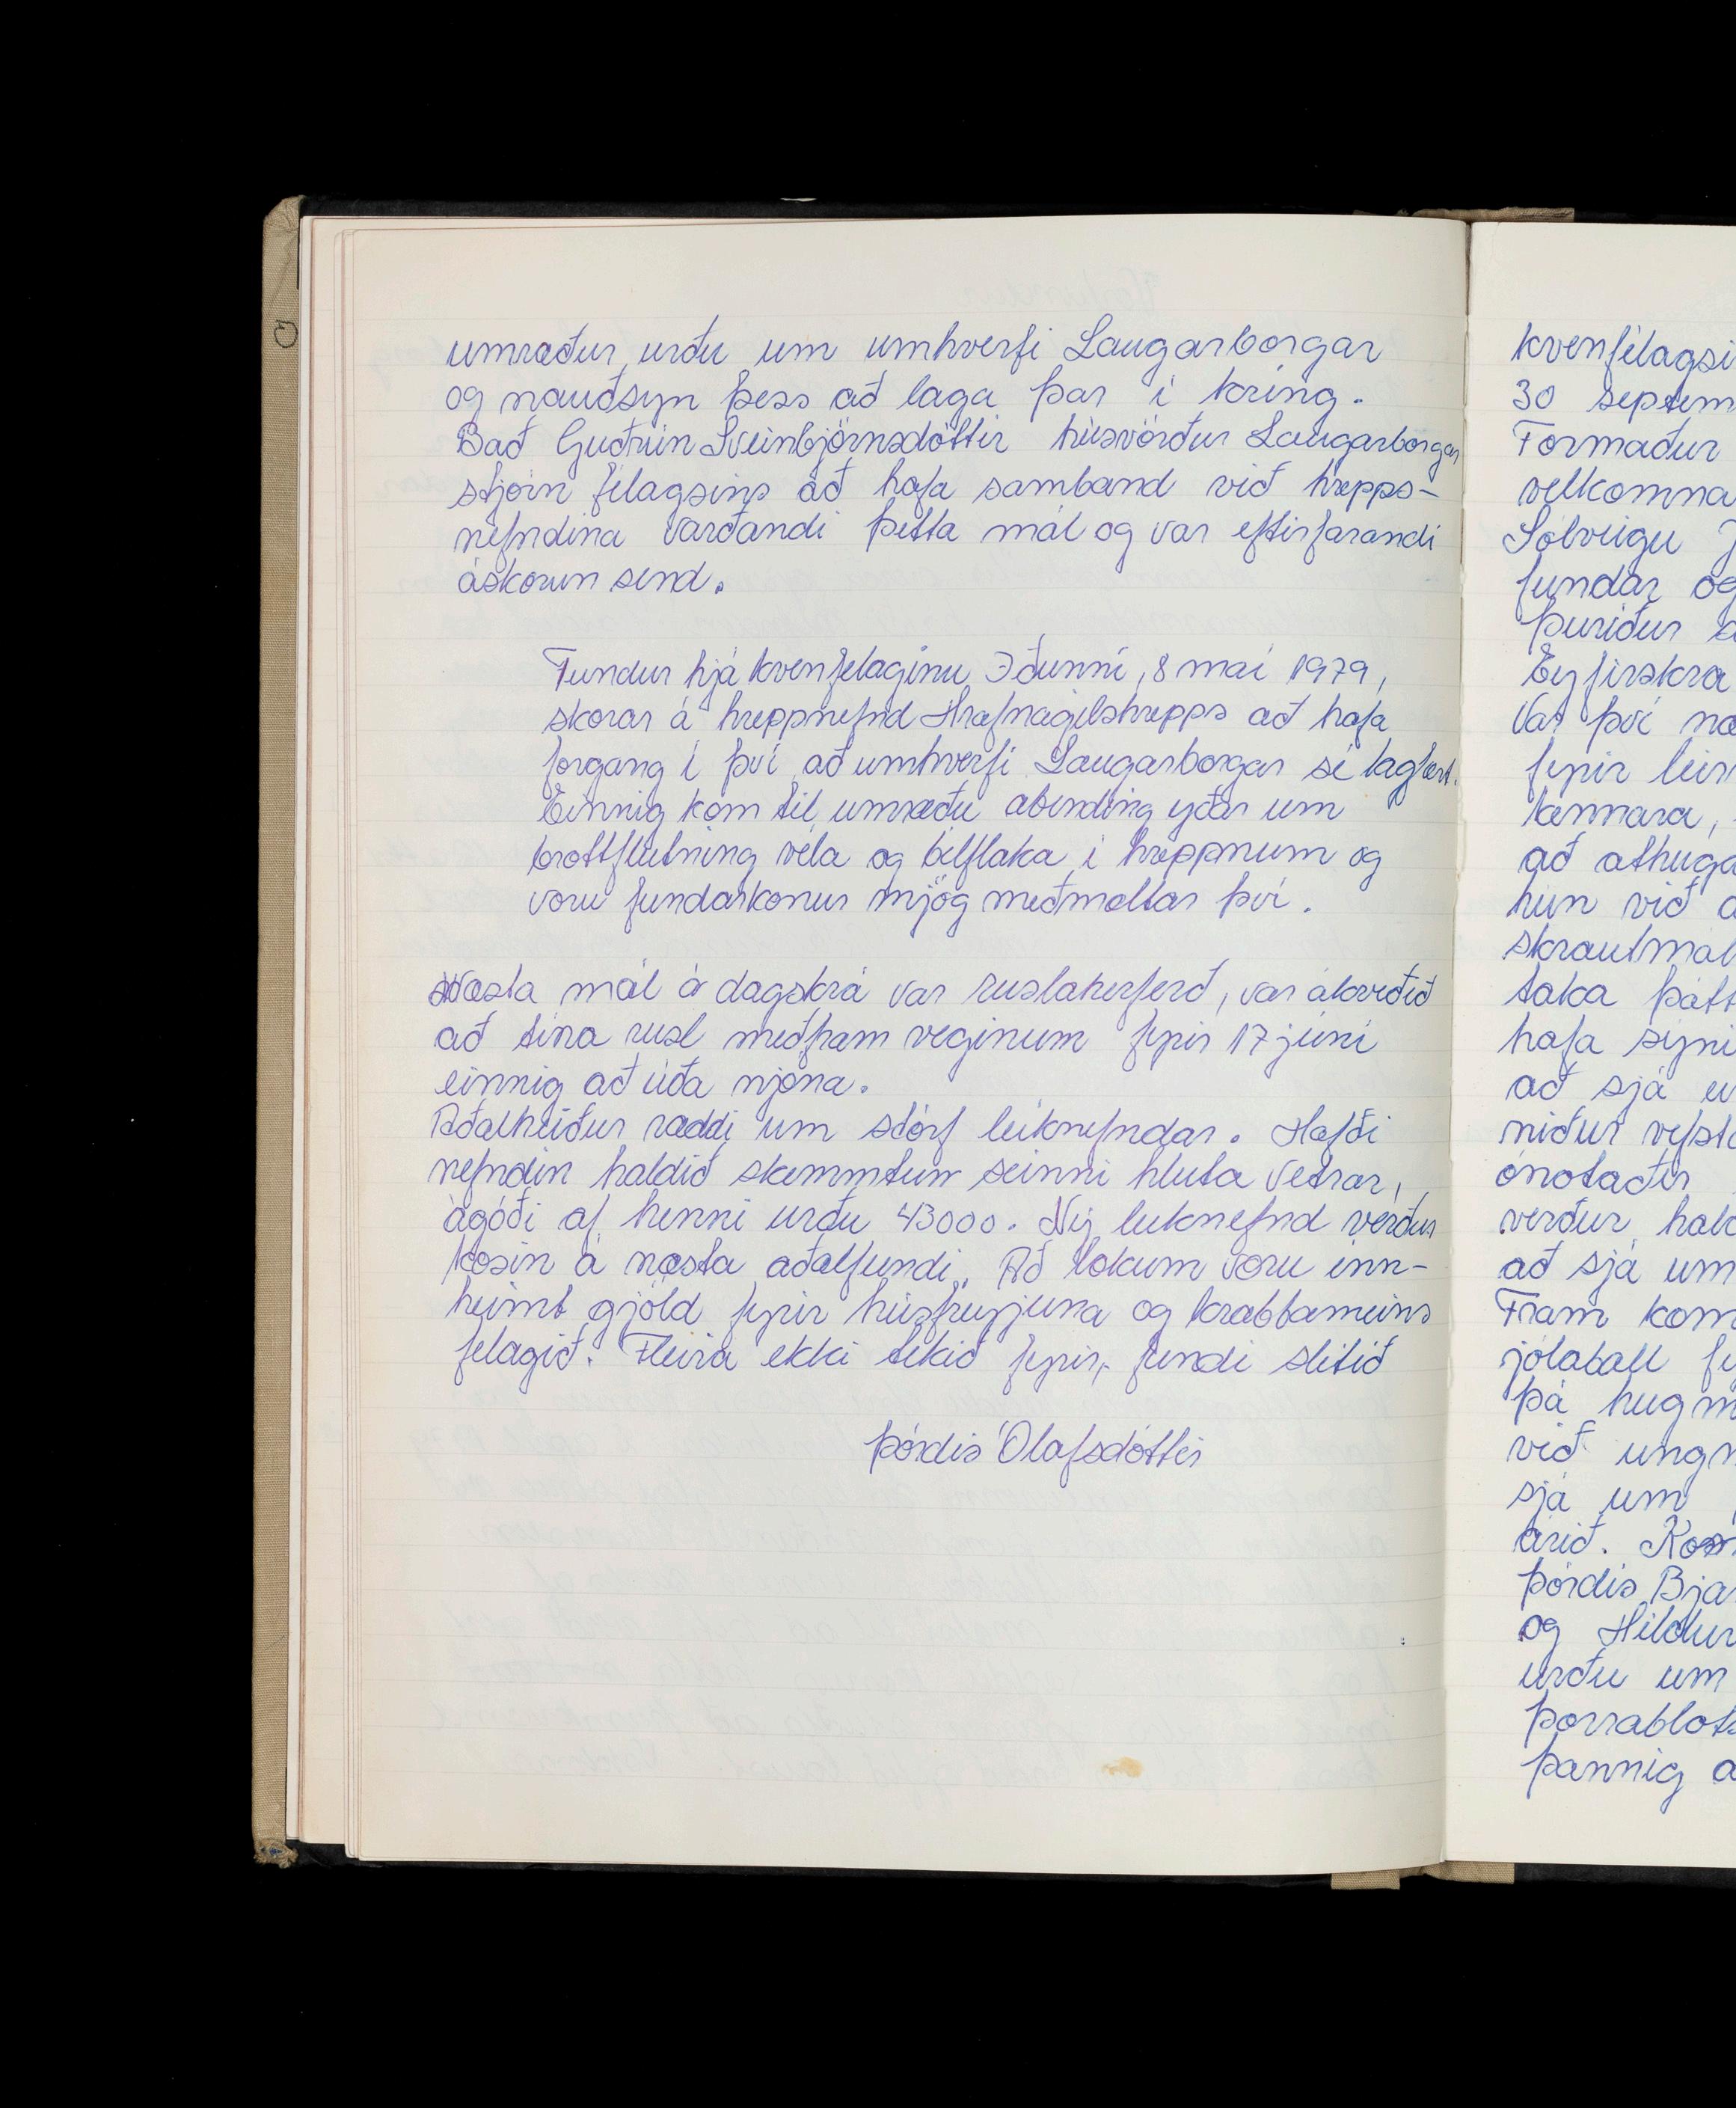 umræður urðu um umhverfi Laugarborgar
og nauðsyn þess að laga þar í kring.
Bað Guðrún Sveinbjörnsdóttir húsvörður Laugarborgar
stjórn félagsins að hafa samband við hrepps-
nefndina varðandi þetta mál og var eftirfarandi
áskorun send.
Fundur hjá kvenfelaginu Iðunni, 8 maí 1979,
skorar á hreppnefnd Hrafnagilshrepps að hafa
forgang í því að umhverfi Laugarborgar sé lagfært.
Einnig kom til umræðu abending yðar um
brottflutning véla og bílflaka í hreppnum og
voru fundarkonur mjög meðmæltar því.
Næsta mál á dagskrá var ruslaherferð, var ákveðið
að tína rusl meðfram veginum fyrir 17 júní
einnig að úða njóna.
Aðalheiður ræddi um störf leiknefndar. Hafði
nefndin haldið skemmtun seinni hluta vetrar,
ágóði af henni urðu 43000. Ný leiknefnd verður
kosin á næsta aðalfundi. Að lokum voru inn-
heimt gjöld fyrir húsfreyjuna og krabbameins
felagið. Fleira ekki tekið fyrir, fundi slitið
Þórdís Ólafsdóttir
kvenfélagsi
30 septem
Formaður
velkomna
Sólveigu J
fundar og
Þuríður
Eyfirskra
Var því næ
fyrir leir
kennara,
að athuga
hún við a
skrautmál
taka þátt
hafa sýni
að sjá u
niður vefsta
ónotaðir
verður hald
að sjá um
Fram kom
jólaball fy
þá hugm
við ungm
sjá um
árið. Kosn
Þórdís Bjar
og Hildur
urðu um
þorrablots
þannig a